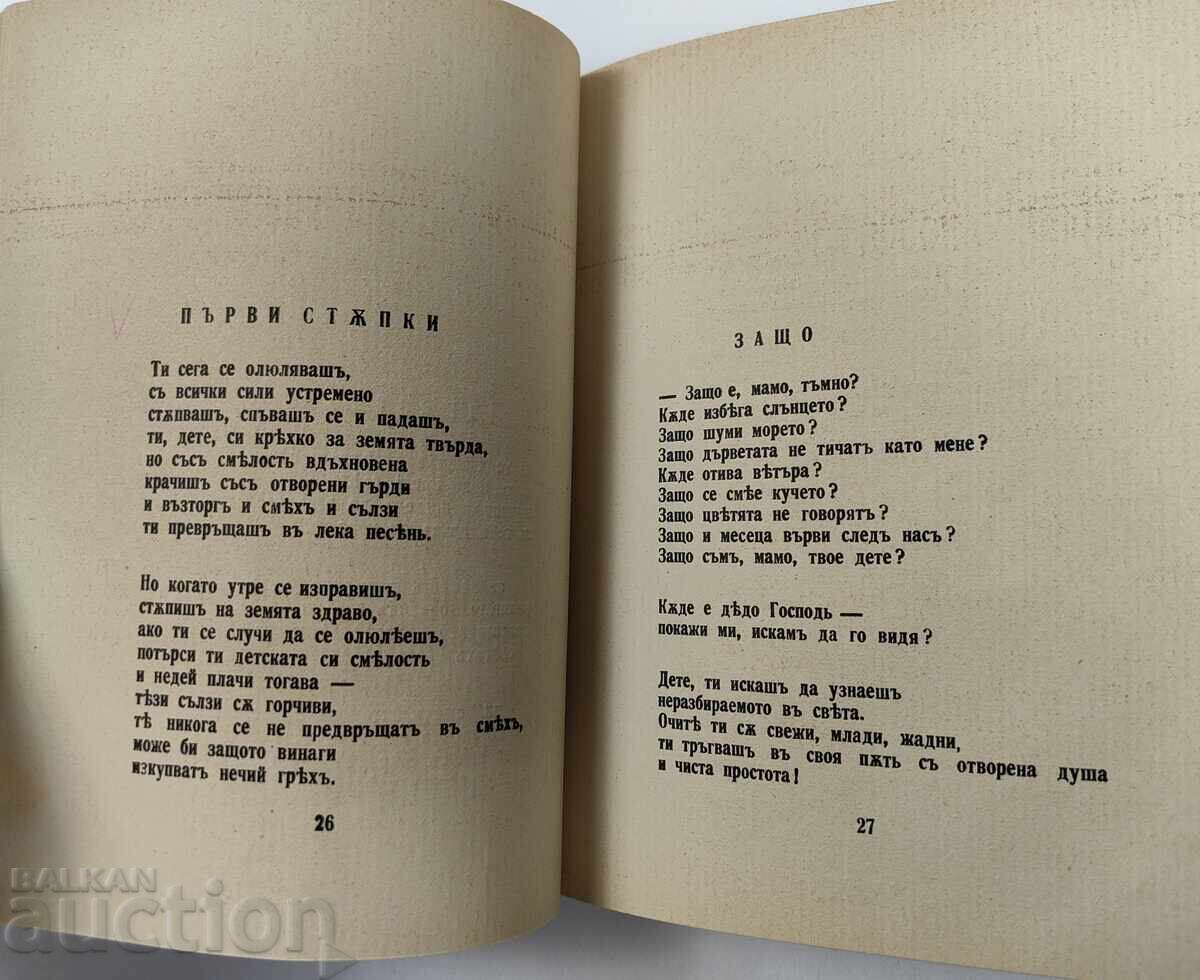 ПЪРВИ СТѪПКИ
Ти сега се олюлявашъ,
съ всички сили устремено
стѫпвашъ, спъвашъ се и падашъ,
ти, дете, си крѣхко за земята твърда,
но съсъ смѣлость вдъхновена
крачишъ съсъ отворени гърди
и възторгъ и смѣхъ и сълзи
ти превръщашъ въ лека песѣнь.
Но когато утре се изправишъ,
стѫпишъ на земята здраво,
ако ти се случи да се олюлѣешъ,
потърси ти детската си смѣлость
и недей плачи тогава —
тѣзи сълзи сѫ горчиви,
тѣ никога се не предвръщатъ въ смѣхъ,
може би защото винаги
изкупватъ нечий грѣхъ.
26
ЗАЩО
— Защо е, мамо, тъмно?
Кѫде избѣга слънцето?
Защо шуми морето?
Защо дърветата не тичатъ като мене?
Кѫде отива вѣтъра?
Защо се смѣе кучето?
Защо цвѣтята не говорятъ?
Защо и месеца върви следъ насъ?
Защо съмъ, мамо, твое дете?
Кѫде е дѣдо Господь —
покажи ми, искамъ да го видя?
Дете, ти искашъ да узнаешъ
неразбираемото въ свѣта.
Очитѣ ти сѫ свежи, млади, жадни,
ти тръгвашъ въ своя пѫть съ отворена душа
и чиста простота!
27
BALKAN
auction